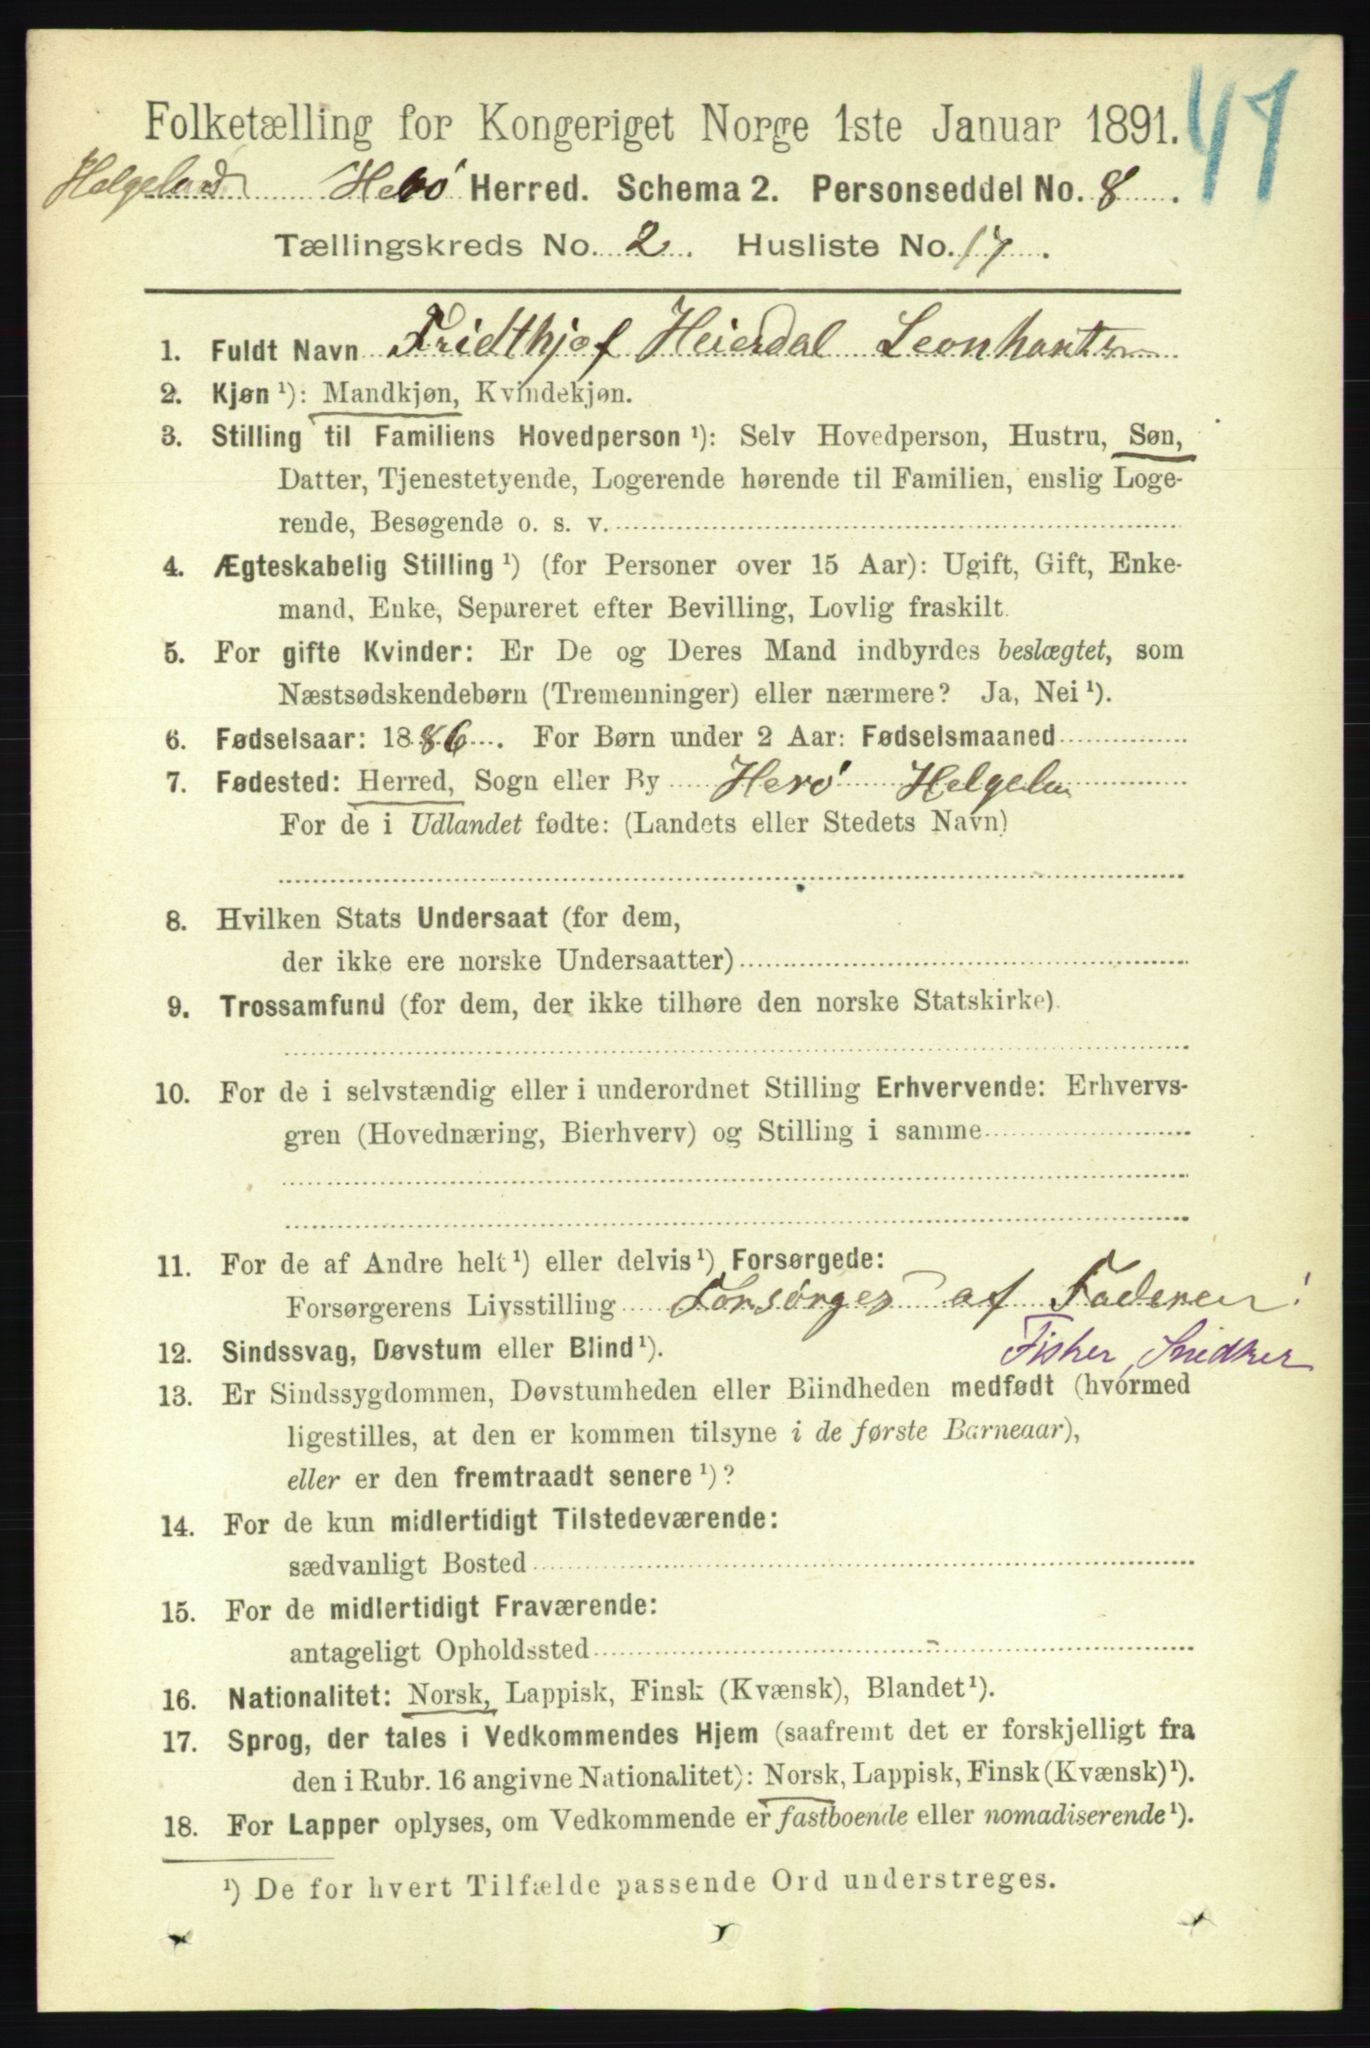 47
Folketælling for Kongeriget Norge 1ste Januar 1891.
Helgeland Herø Herred. Schema 2. Personseddel No. 8.
Tællingskreds No. 2. Husliste No. 17.
1. Fuldt Navn Fridthjof Heierdal Leonhantsen
2. Kjøn ¹): Mandkjøn, Kvindekjøn.
3. Stilling til Familiens Hovedperson ¹): Selv Hovedperson, Hustru, Søn,
Datter, Tjenestetyende, Logerende hørende til Familien, enslig Loge-
rende, Besøgende o. s. v.
4. Ægteskabelig Stilling ¹) (for Personer over 15 Aar): Ugift, Gift, Enke-
mand, Enke, Separeret efter Bevilling, Lovlig fraskilt.
5. For gifte Kvinder: Er De og Deres Mand indbyrdes beslægtet, som
Næstsødskendebørn (Tremenninger) eller nærmere? Ja, Nei ¹).
6. Fødselsaar: 1886. For Børn under 2 Aar: Fødselsmaaned
7. Fødested: Herred, Sogn eller By Herø Helgelan
For de i Udlandet fødte: (Landets eller Stedets Navn)
8. Hvilken Stats Undersaat (for dem,
der ikke ere norske Undersaatter)
9. Trossamfund (for dem, der ikke tilhøre den norske Statskirke).
10. For de i selvstændig eller i underordnet Stilling Erhvervende: Erhvervs-
gren (Hovednæring, Bierhverv) og Stilling i samme
11. For de af Andre helt ¹) eller delvis ¹) Forsørgede:
Forsørgerens Livsstilling Forsørges af Faderen!
Fisker, Snedker
12. Sindssvag, Døvstum eller Blind ¹).
13. Er Sindssygdommen, Døvstumheden eller Blindheden medfødt (hvormed
ligestilles, at den er kommen tilsyne i de første Barneaar),
eller er den fremtraadt senere ¹)?
14. For de kun midlertidigt Tilstedeværende:
sædvanligt Bosted
15. For de midlertidigt Fraværende:
antageligt Opholdssted
16. Nationalitet: Norsk, Lappisk, Finsk (Kvænsk), Blandet ¹).
17. Sprog, der tales i Vedkommendes Hjem (saafremt det er forskjelligt fra
den i Rubr. 16 angivne Nationalitet): Norsk, Lappisk, Finsk (Kvænsk) ¹).
18. For Lapper oplyses, om Vedkommende er fastboende eller nomadiserende ¹).
¹) De for hvert Tilfælde passende Ord understreges.